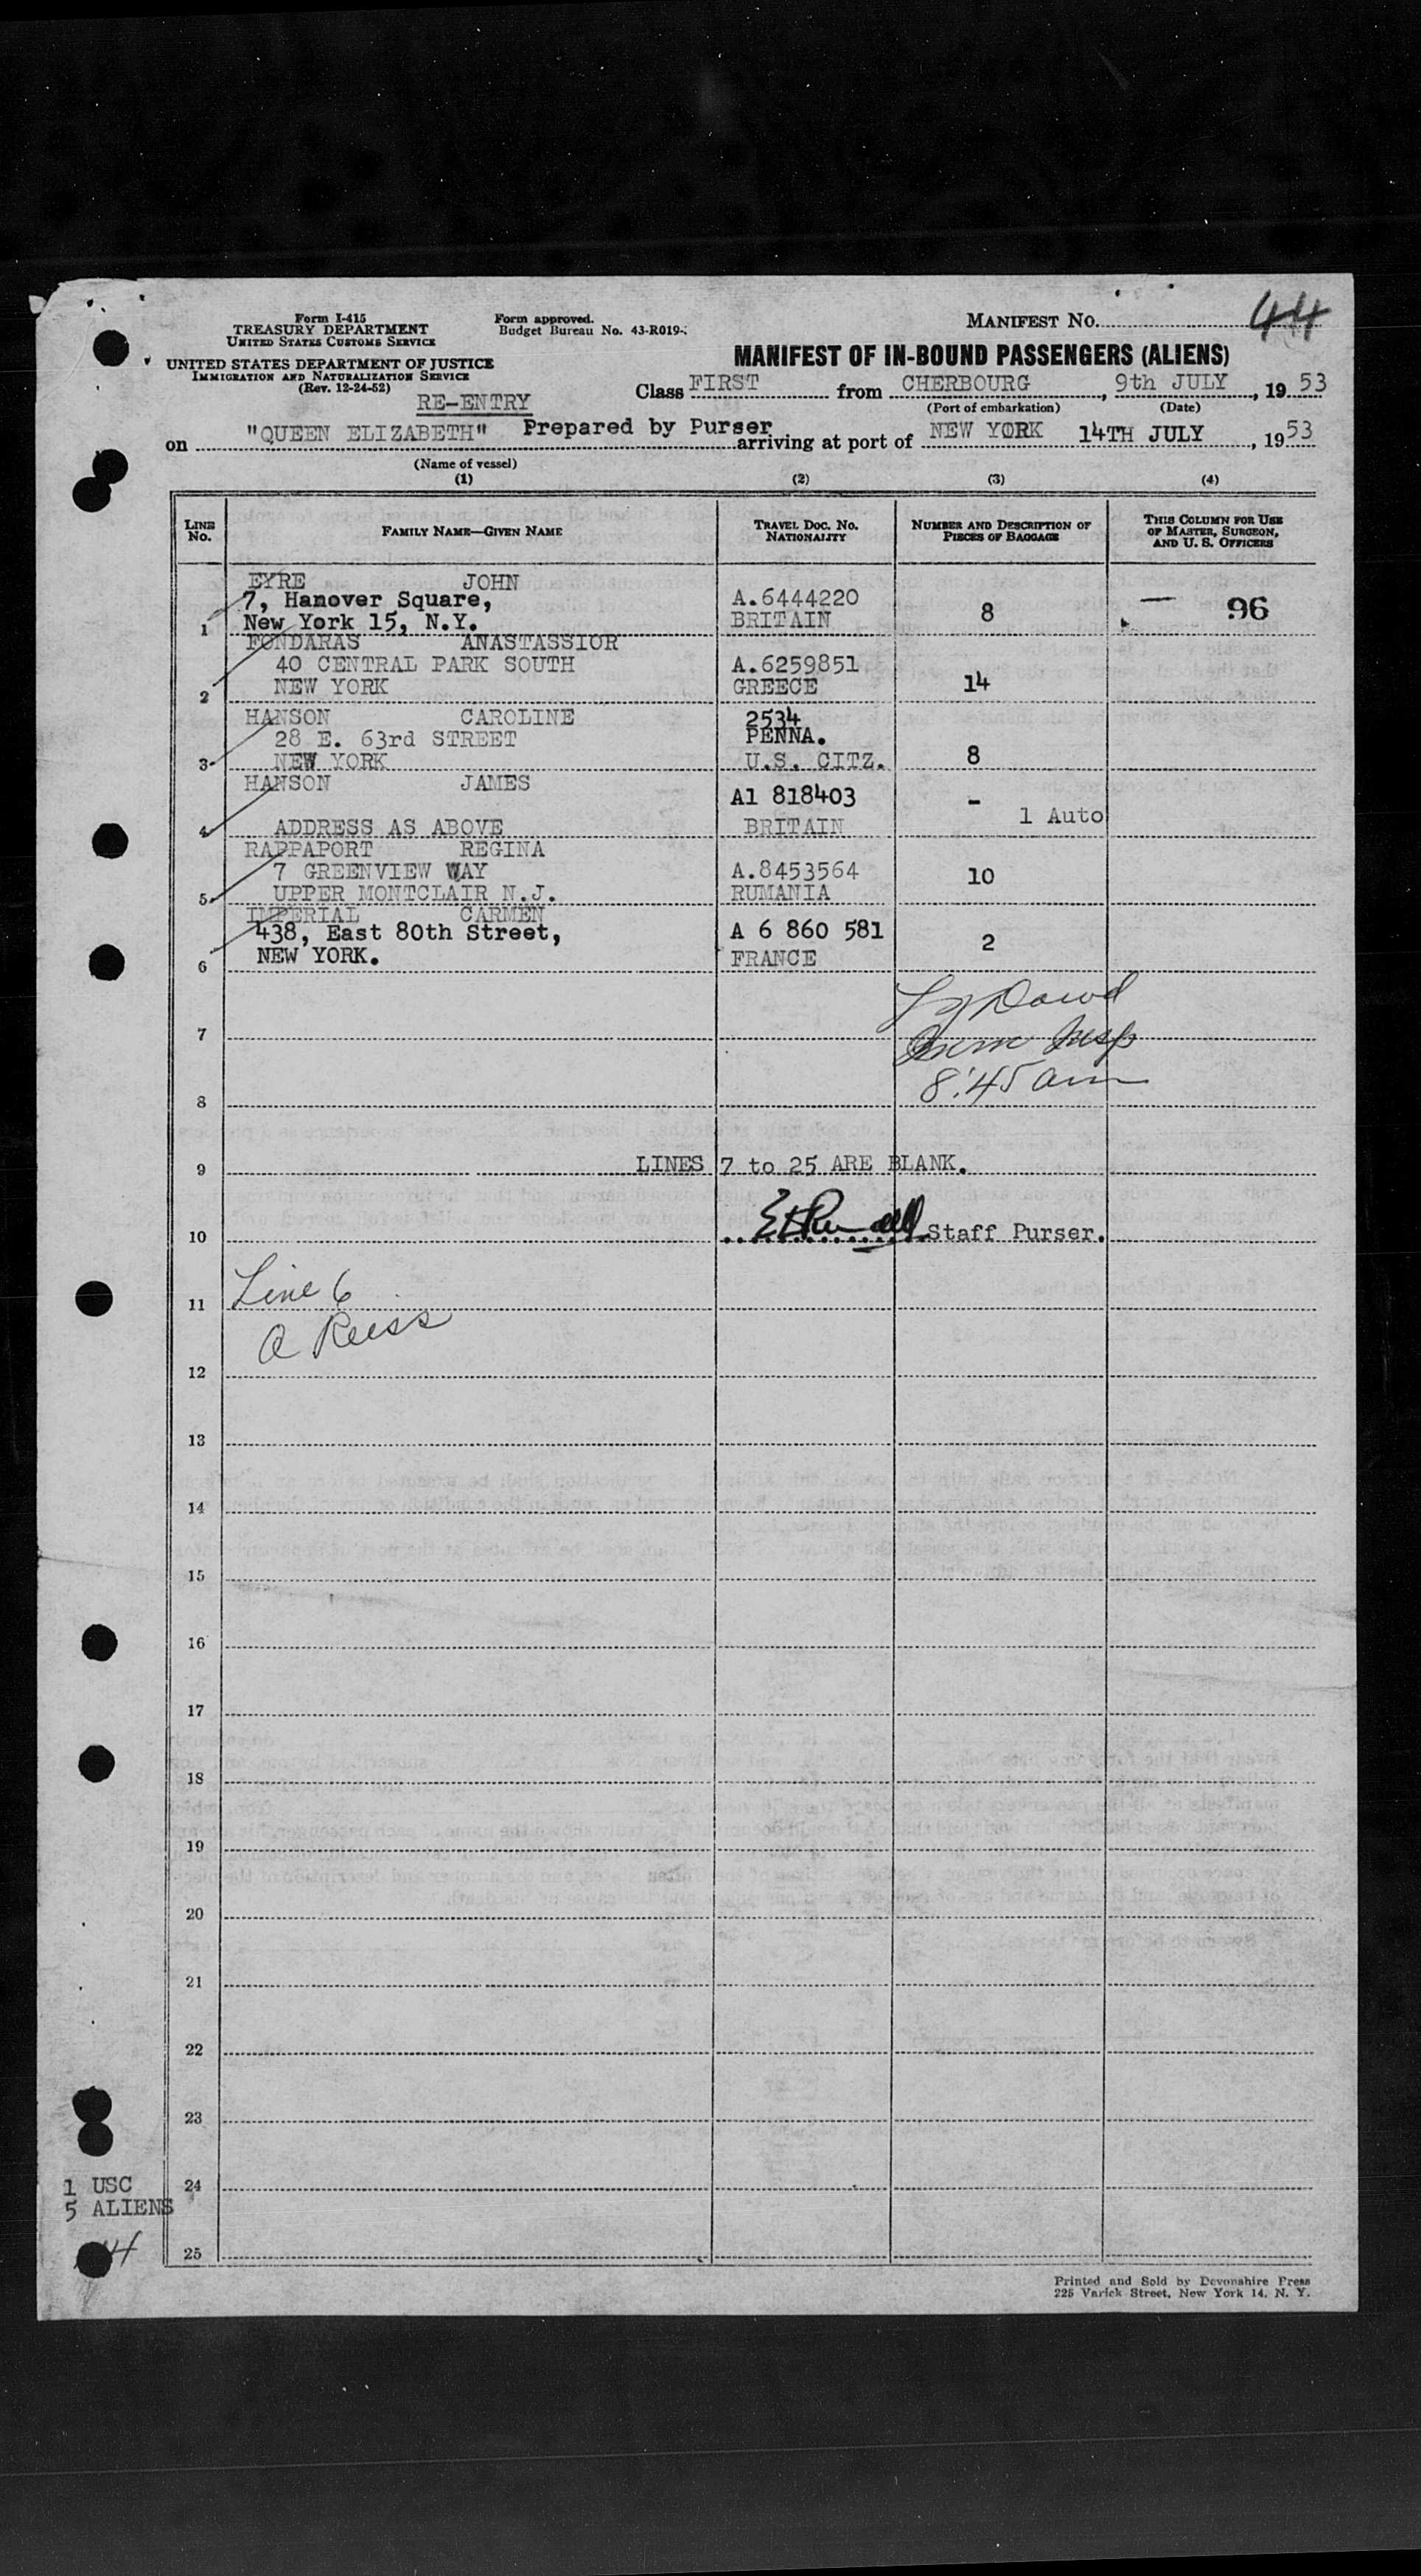 Form I-415
TREASURY DEPARTMENT
UNITED STATES CUSTOMS SERVICE
Form approved.
Budget Bureau No. 43-R019-
MANIFEST NO. 44
UNITED STATES DEPARTMENT OF JUSTICE
IMMIGRATION AND NATURALIZATION SERVICE
(Rev. 12-24-52)
MANIFEST OF IN-BOUND PASSENGERS (ALIENS)
RE-ENTRY
Class FIRST from CHERBOURG, 9th JULY, 1953
(Port of embarkation) (Date)
on "QUEEN ELIZABETH" Prepared by Purser arriving at port of NEW YORK 14TH JULY, 1953
(Name of vessel)
(1) (2) (3) (4)
LINE No. FAMILY NAME—GIVEN NAME TRAVEL DOC. NO. NATIONALITY NUMBER AND DESCRIPTION OF PIECES OF BAGGAGE THIS COLUMN FOR USE OF MASTER, SURGEON, AND U. S. OFFICERS
EYRE JOHN
7, Hanover Square, A.6444220
1 New York 15, N.Y. BRITAIN 8 — 96
FONDARAS ANASTASSIOR
40 CENTRAL PARK SOUTH A.6259851
2 NEW YORK GREECE 14
HANSON CAROLINE 2534
28 E. 63rd STREET PENNA.
3 NEW YORK U.S. CITZ. 8
HANSON JAMES A1 818403 -
4 ADDRESS AS ABOVE BRITAIN 1 Auto
RAPPAPORT REGINA
7 GREENVIEW WAY A.8453564 10
5 UPPER MONTCLAIR N.J. RUMANIA
IMPERIAL CARMEN
438, East 80th Street, A 6 860 581 2
6 NEW YORK. FRANCE
Dowd
7 Imm Insp
8 8:45 am
9 LINES 7 to 25 ARE BLANK.
10 Staff Purser.
11 Line 6
A Reiss
12
13
14
15
16
17
18
19
20
21
22
23
1 USC 24
5 ALIENS
25
Printed and Sold by Devonshire Press
225 Varick Street, New York 14, N. Y.